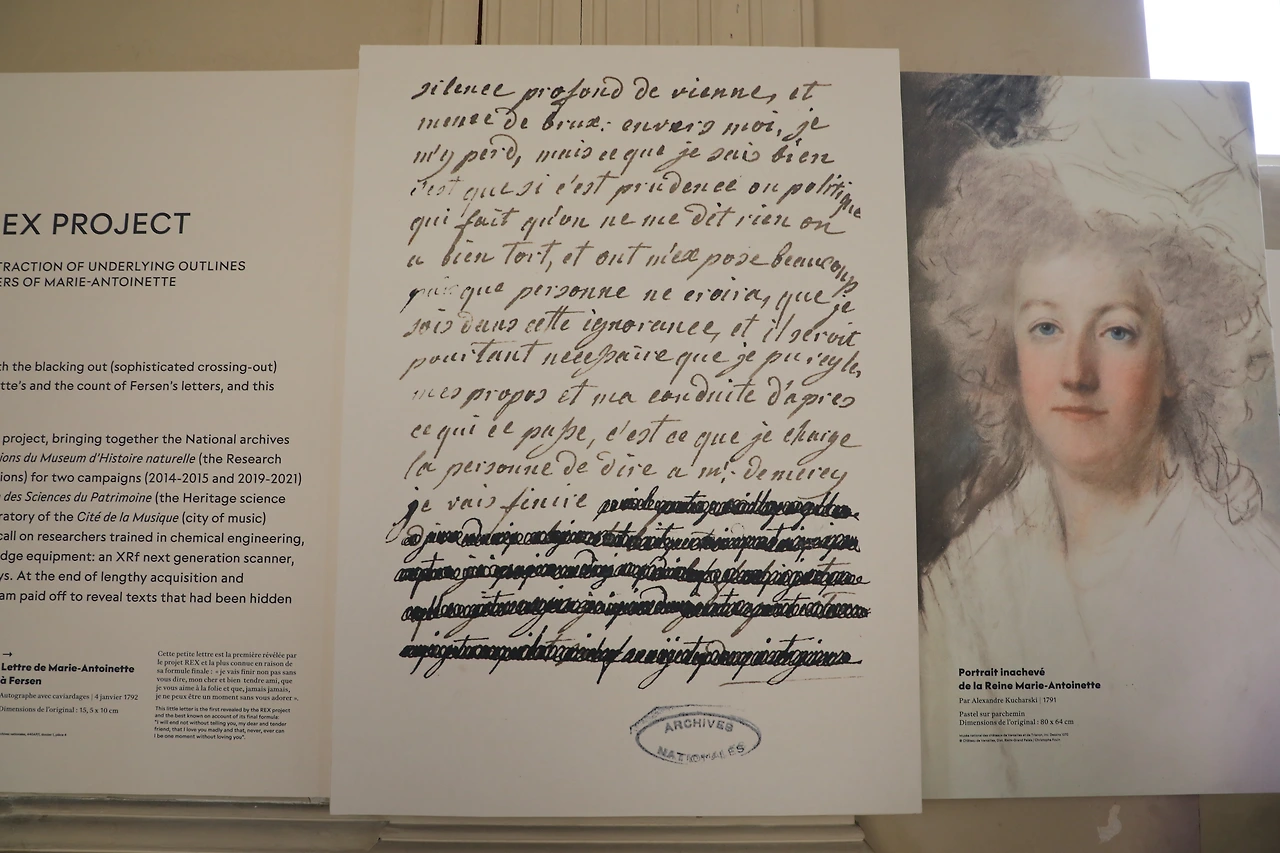 EX PROJECT
TRACTION OF UNDERLYING OUTLINES
ERS OF MARIE-ANTOINETTE
th the blacking out (sophisticated crossing-out)
tte's and the count of Fersen's letters, and this
project, bringing together the National archives
ions du Museum d'Histoire naturelle (the Research
ions) for two campaigns (2014-2015 and 2019-2021)
des Sciences du Patrimoine (the Heritage science
ratory of the Cité de la Musique (city of music)
call on researchers trained in chemical engineering,
dge equipment: an XRf next generation scanner,
ys. At the end of lengthy acquisition and
am paid off to reveal texts that had been hidden
→
Lettre de Marie-Antoinette
à Fersen
Autographe avec caviardages | 4 janvier 1792
Dimensions de l'original : 15,5 x 10 cm
Cette petite lettre est la première révélée par
le projet REX et la plus connue en raison de
sa formule finale : « je vais finir non pas sans
vous dire, mon cher et bien tendre ami, que
je vous aime à la folie et que, jamais, jamais,
je ne peux être un moment sans vous adorer ».
This little letter is the first revealed by the REX project
and the best known on account of its final formula:
"I will end not without telling you, my dear and tender
friend, that I love you madly and that, never, ever can
I be one moment without loving you".
silence profond de vienne, et
meme de brux: envers moi, je
m'y perd, mais ce que je sais bien
c'est que si c'est prudence ou politique
qui fait qu'on ne me dit rien on
a bien tort, et ont m'expose beaucoup
puisque personne ne croira, que je
sois dans cette ignorance, et il seroit
pourtant necessaire que je pu regler
mes propos et ma conduite d'apres
ce qui ce passe, c'est ce que je charge
la personne de dire a mr: de mercy
je vais finire
ARCHIVES
NATIONALES
Portrait inachevé
de la Reine Marie-Antoinette
Par Alexandre Kucharski | 1791
Pastel sur parchemin
Dimensions de l'original : 80 x 64 cm